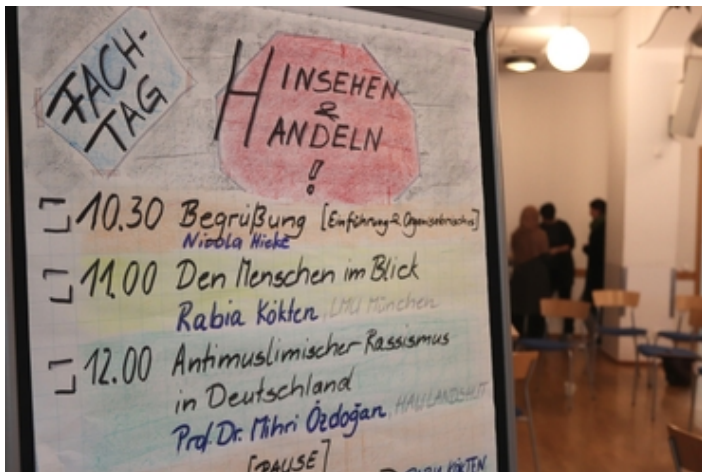 FACH-
TAG
HINSEHEN
&
HANDELN
!
10.30 Begrüßung [Einführung & Organisatorisches]
Nicola Hieke
11.00 Den Menschen im Blick
Rabia Kökten, LMU München
12.00 Antimuslimischer Rassismus
in Deutschland
Prof. Dr. Mihri Özdoğan, HAW LANDSHUT
[PAUSE]
KÖKTEN